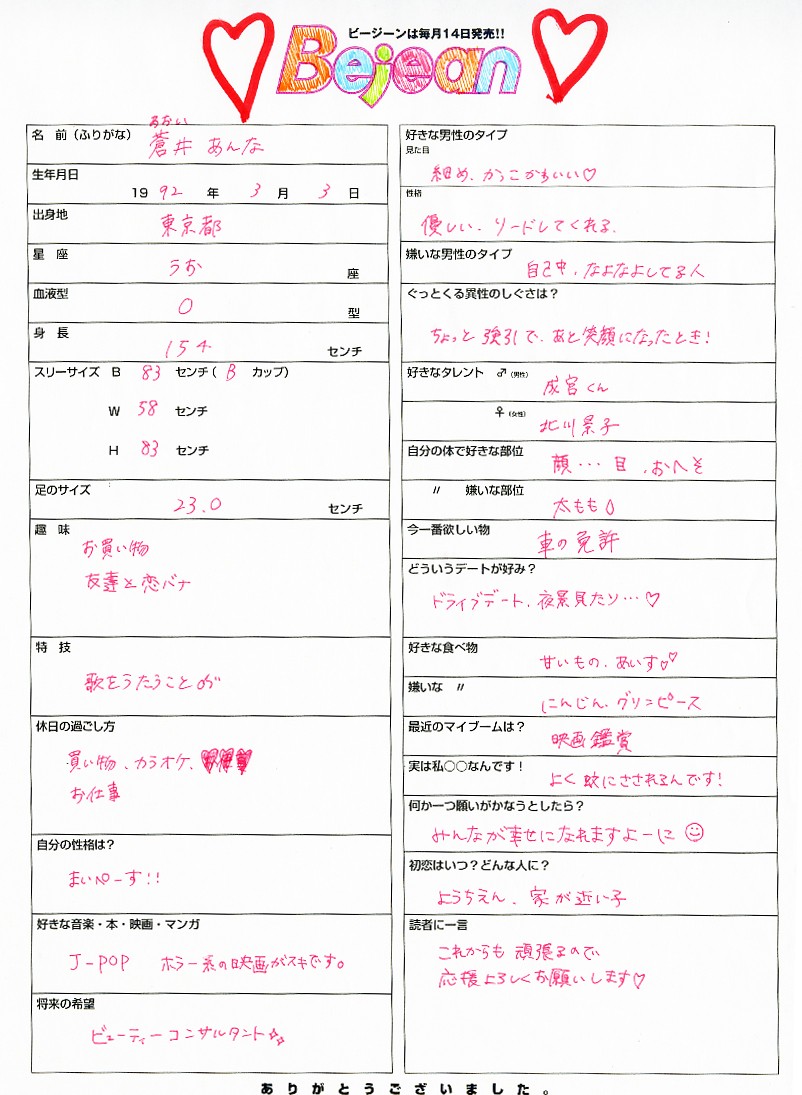 ビージーンは毎月14日発売!!
Bejean
名 前(ふりがな)
あおい
蒼井 あんな
生年月日
1992年 3月 3日
出身地
東京都
星 座
うお 座
血液型
O 型
身 長
154 センチ
スリーサイズ B 83 センチ( B カップ)
W 58 センチ
H 83 センチ
足のサイズ
23.0 センチ
趣 味
お買い物
友達と恋バナ
特 技
歌をうたうこと
休日の過ごし方
買い物、カラオケ、
お仕事
自分の性格は?
まいぺーす!!
好きな音楽・本・映画・マンガ
J-POP ホラー系の映画がスキです。
将来の希望
ビューティーコンサルタント
好きな男性のタイプ
見た目
細め、かっこかわいい♡
性格
優しい、リードしてくれる、
嫌いな男性のタイプ
自己中、なよなよしてる人
ぐっとくる異性のしぐさは?
ちょっと強引で、あと笑顔になったとき!
好きなタレント ♂(男性)
成宮くん
♀(女性)
北川景子
自分の体で好きな部位
顔…目、おへそ
〃 嫌いな部位
太もも
今一番欲しい物
車の免許
どういうデートが好み?
ドライブデート、夜景見たり…♡
好きな食べ物
甘いもの、あいす♡♡
嫌いな 〃
にんじん、グリンピース
最近のマイブームは?
映画鑑賞
実は私○○なんです!
よく蚊にさされるんです!
何か一つ願いがかなうとしたら?
みんなが幸せになれますよーに☺
初恋はいつ?どんな人に?
ようちえん、家が近い子
読者に一言
これからも頑張るので
応援よろしくお願いします♡
ありがとうございました。